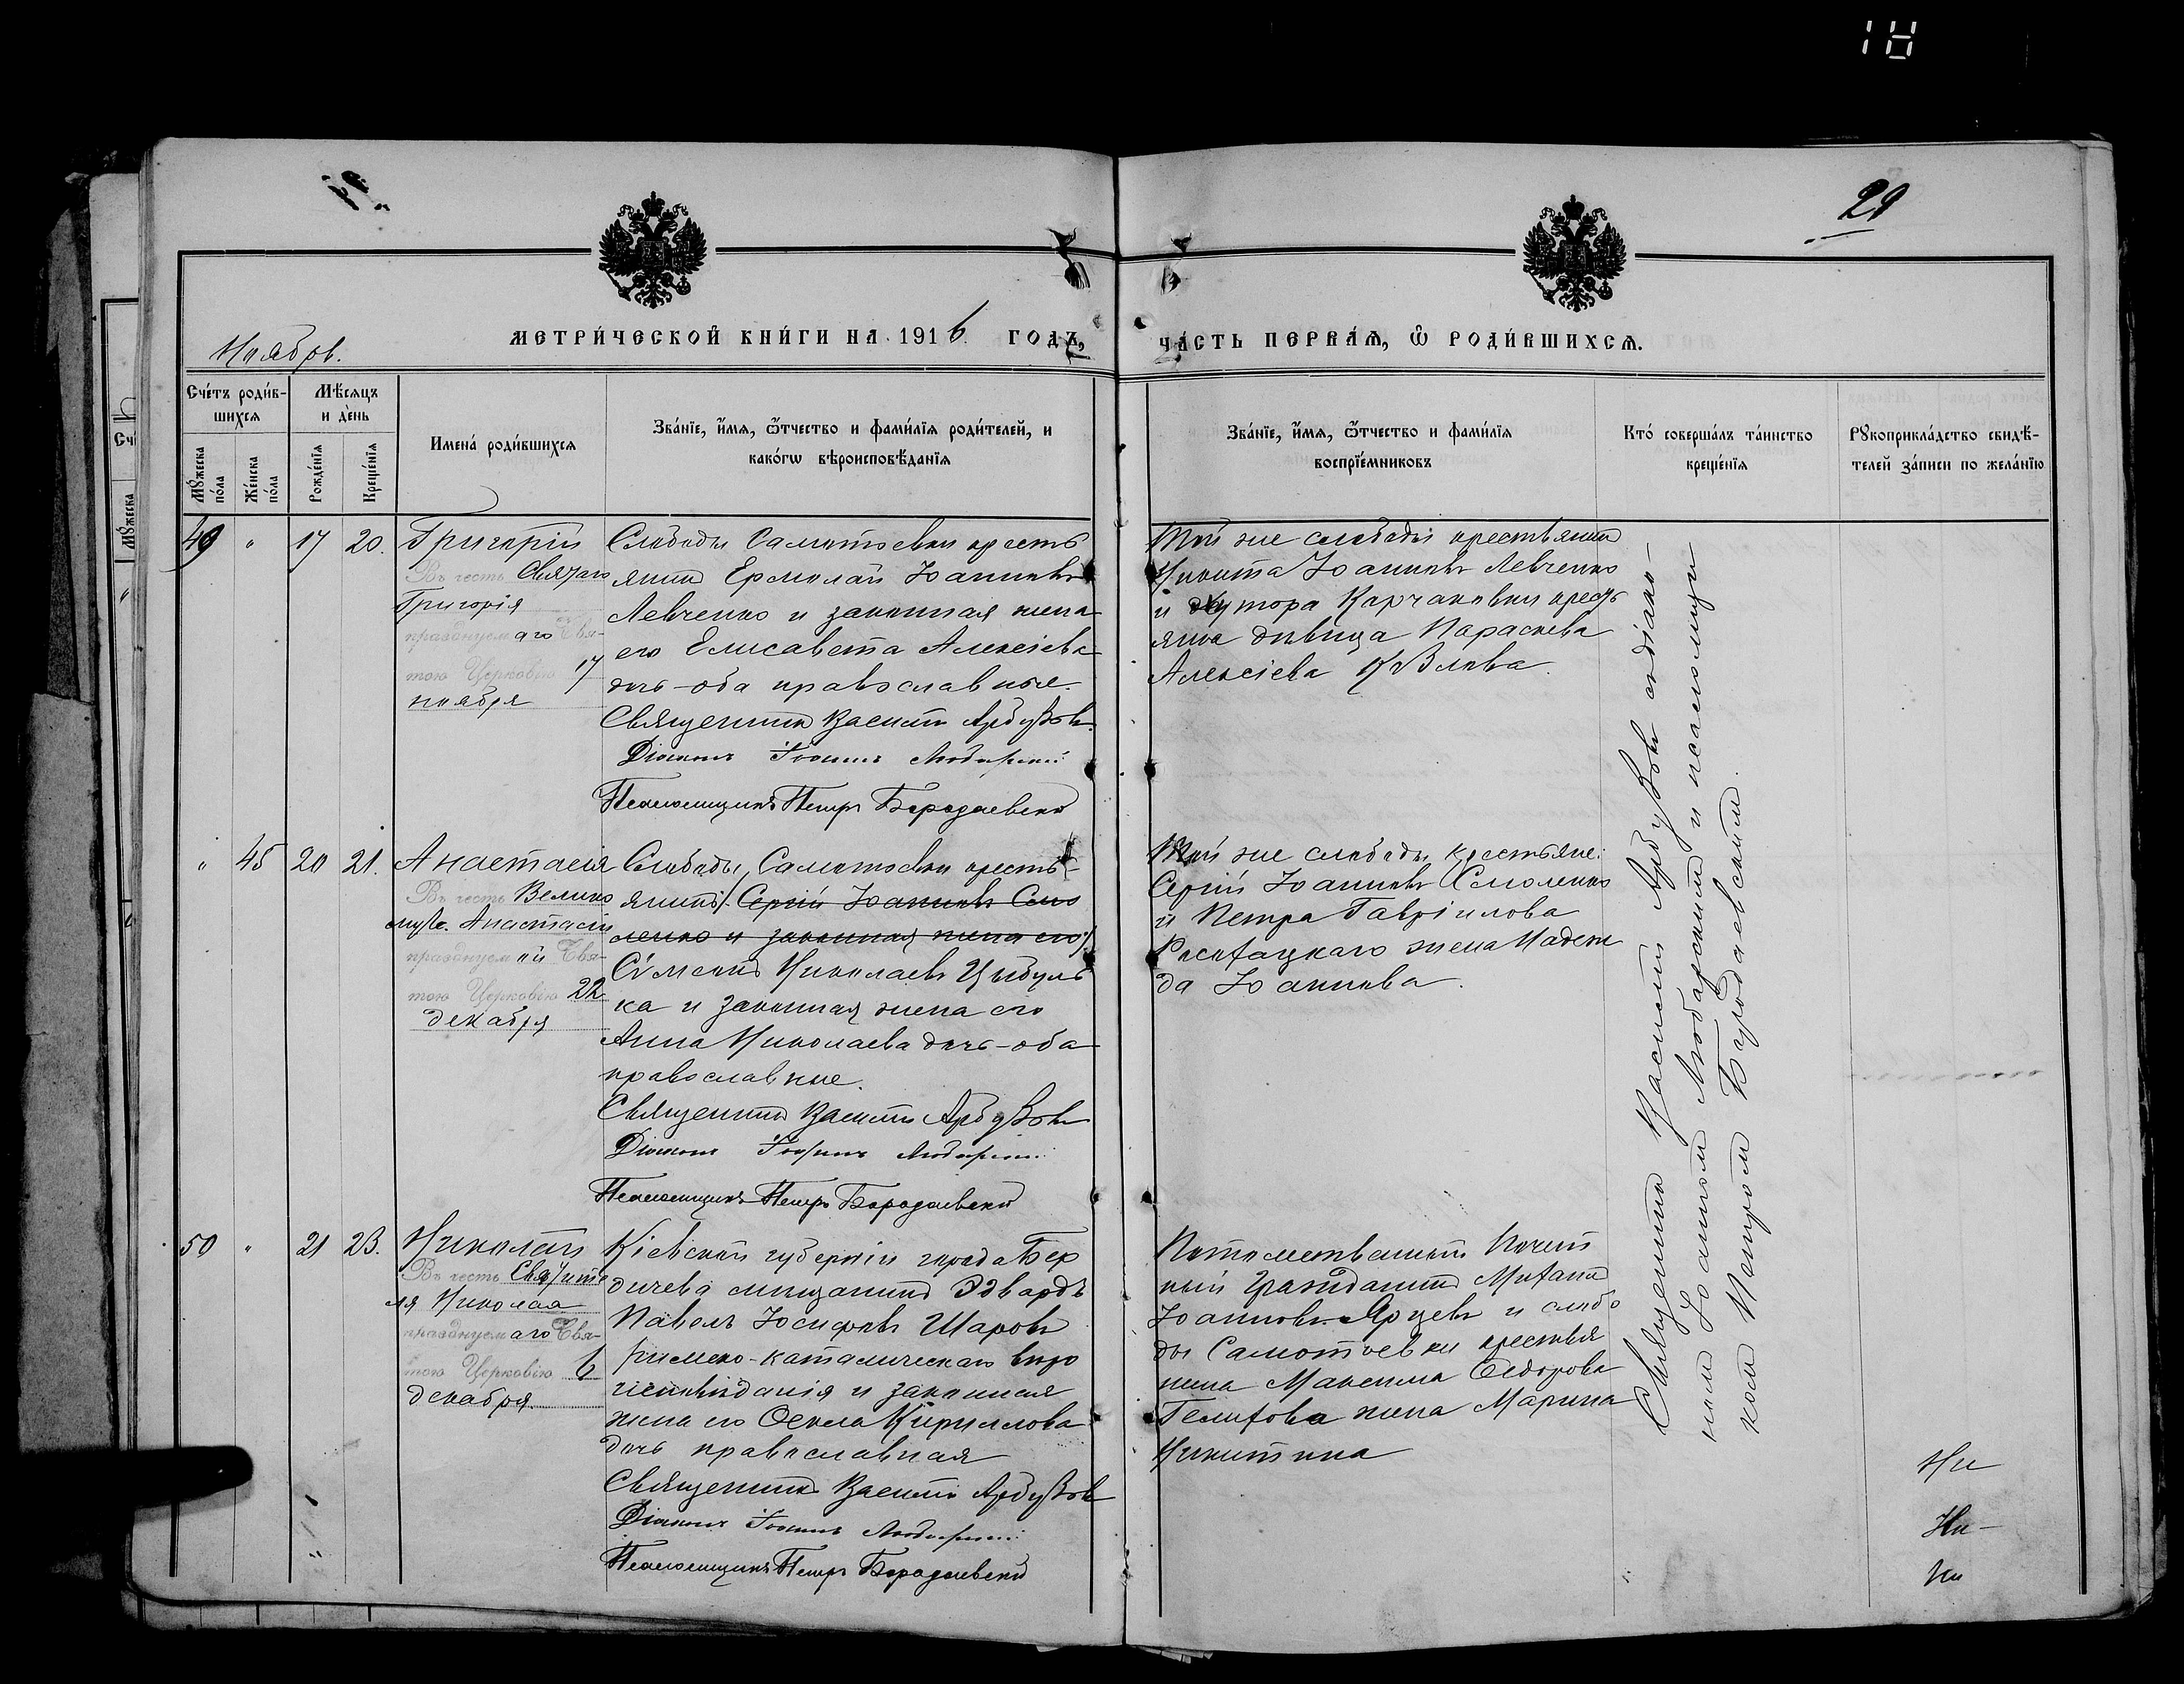 18
29
МЕТРИ́ЧЕСКОЙ КНИ́ГИ НА 1916 ГОДЪ,
ЧА́СТЬ ПЕРВАЯ, Ѡ РОДИ́ВШИХСЯ.
Ноябрь.
Сче́тъ роди́в-
шихся
Мѣсяцъ
и де́нь
Му́жеска
по́ла
Же́нска
по́ла
Рожде́нїя
Креще́нїя
Имена́ роди́вшихся
Зва́нїе, и́мя, ѻ́тчество и фами́лїя роди́телей, и
како́гѡ вѣроисповѣ́данїя
Зва́нїе, и́мя, ѻ́тчество и фами́лїя
воспрїе́мниковъ
Кто́ соверша́лъ та́инство
креще́нїя
Рукоприкла́дство свидѣ́-
телей за́писи по жела́нїю
49 " 17 20.
Григорій
Въ честь Святаго
Григорія
празднуемаго Свя-
тою Церковію 17
ноября
Слободы Самотоевки кресть
янинъ Ермолай Іоанновъ
Левченко и законная жена
его Елисавета Алексіева
дочь - оба православные.
Священникъ Василій Арбузовъ
Діаконъ Іоаннъ Любарскій
Псаломщикъ Петръ Бородаевскій
Той же слободы крестьянинъ
Никита Іоанновъ Левченко
и хутора Карчаковки кресть
янка дѣвица Параскева
Алексіева
" 45 20 21.
Анастасія
Въ честь Велико
муч. Анастасіи
празднуемой Свя-
тою Церковію 22
декабря
Слободы Самотоевки кресть-
янинъ Сергій Іоанновъ Смо
ленко и законная жена его
Сѵмеонъ Николаевъ Цыбуль
ка и законная жена его
Анна Николаева дочь - оба
православные.
Священникъ Василій Арбузовъ
Діаконъ Іоаннъ Любарскій
Псаломщикъ Петръ Бородаевскій
Той же слободы крестьяне:
Сергій Іоанновъ Смоленко
и Петра Гавріилова
жена Надеж
да Іоаннова.
50 " 21 23.
Николай
Въ честь Святите
ля Николая
празднуемаго Свя-
тою Церковію 6
декабря
Кіевской губерніи города Бер
дичева мѣщанинъ Эдвардъ
Павелъ Іосифовъ Шаровъ
римско-католическаго вѣро
исповѣданія и законная
жена его Ѳекла Кириллова
дочь православная
Священникъ Василій Арбузовъ
Діаконъ Іоаннъ Любарскій
Псаломщикъ Петръ Бородаевскій
Потомственный Почет
ный Гражданинъ Митрофанъ
Іоанновъ Ярцевъ и слобо
ды Самотоевки крестья
нина Максима Ѳедорова
жена Марина
Никитина
Священникъ Василій Арбузовъ съ діако-
номъ Іоанномъ Любарскимъ и псаломщи
комъ Петромъ Бородаевскимъ.